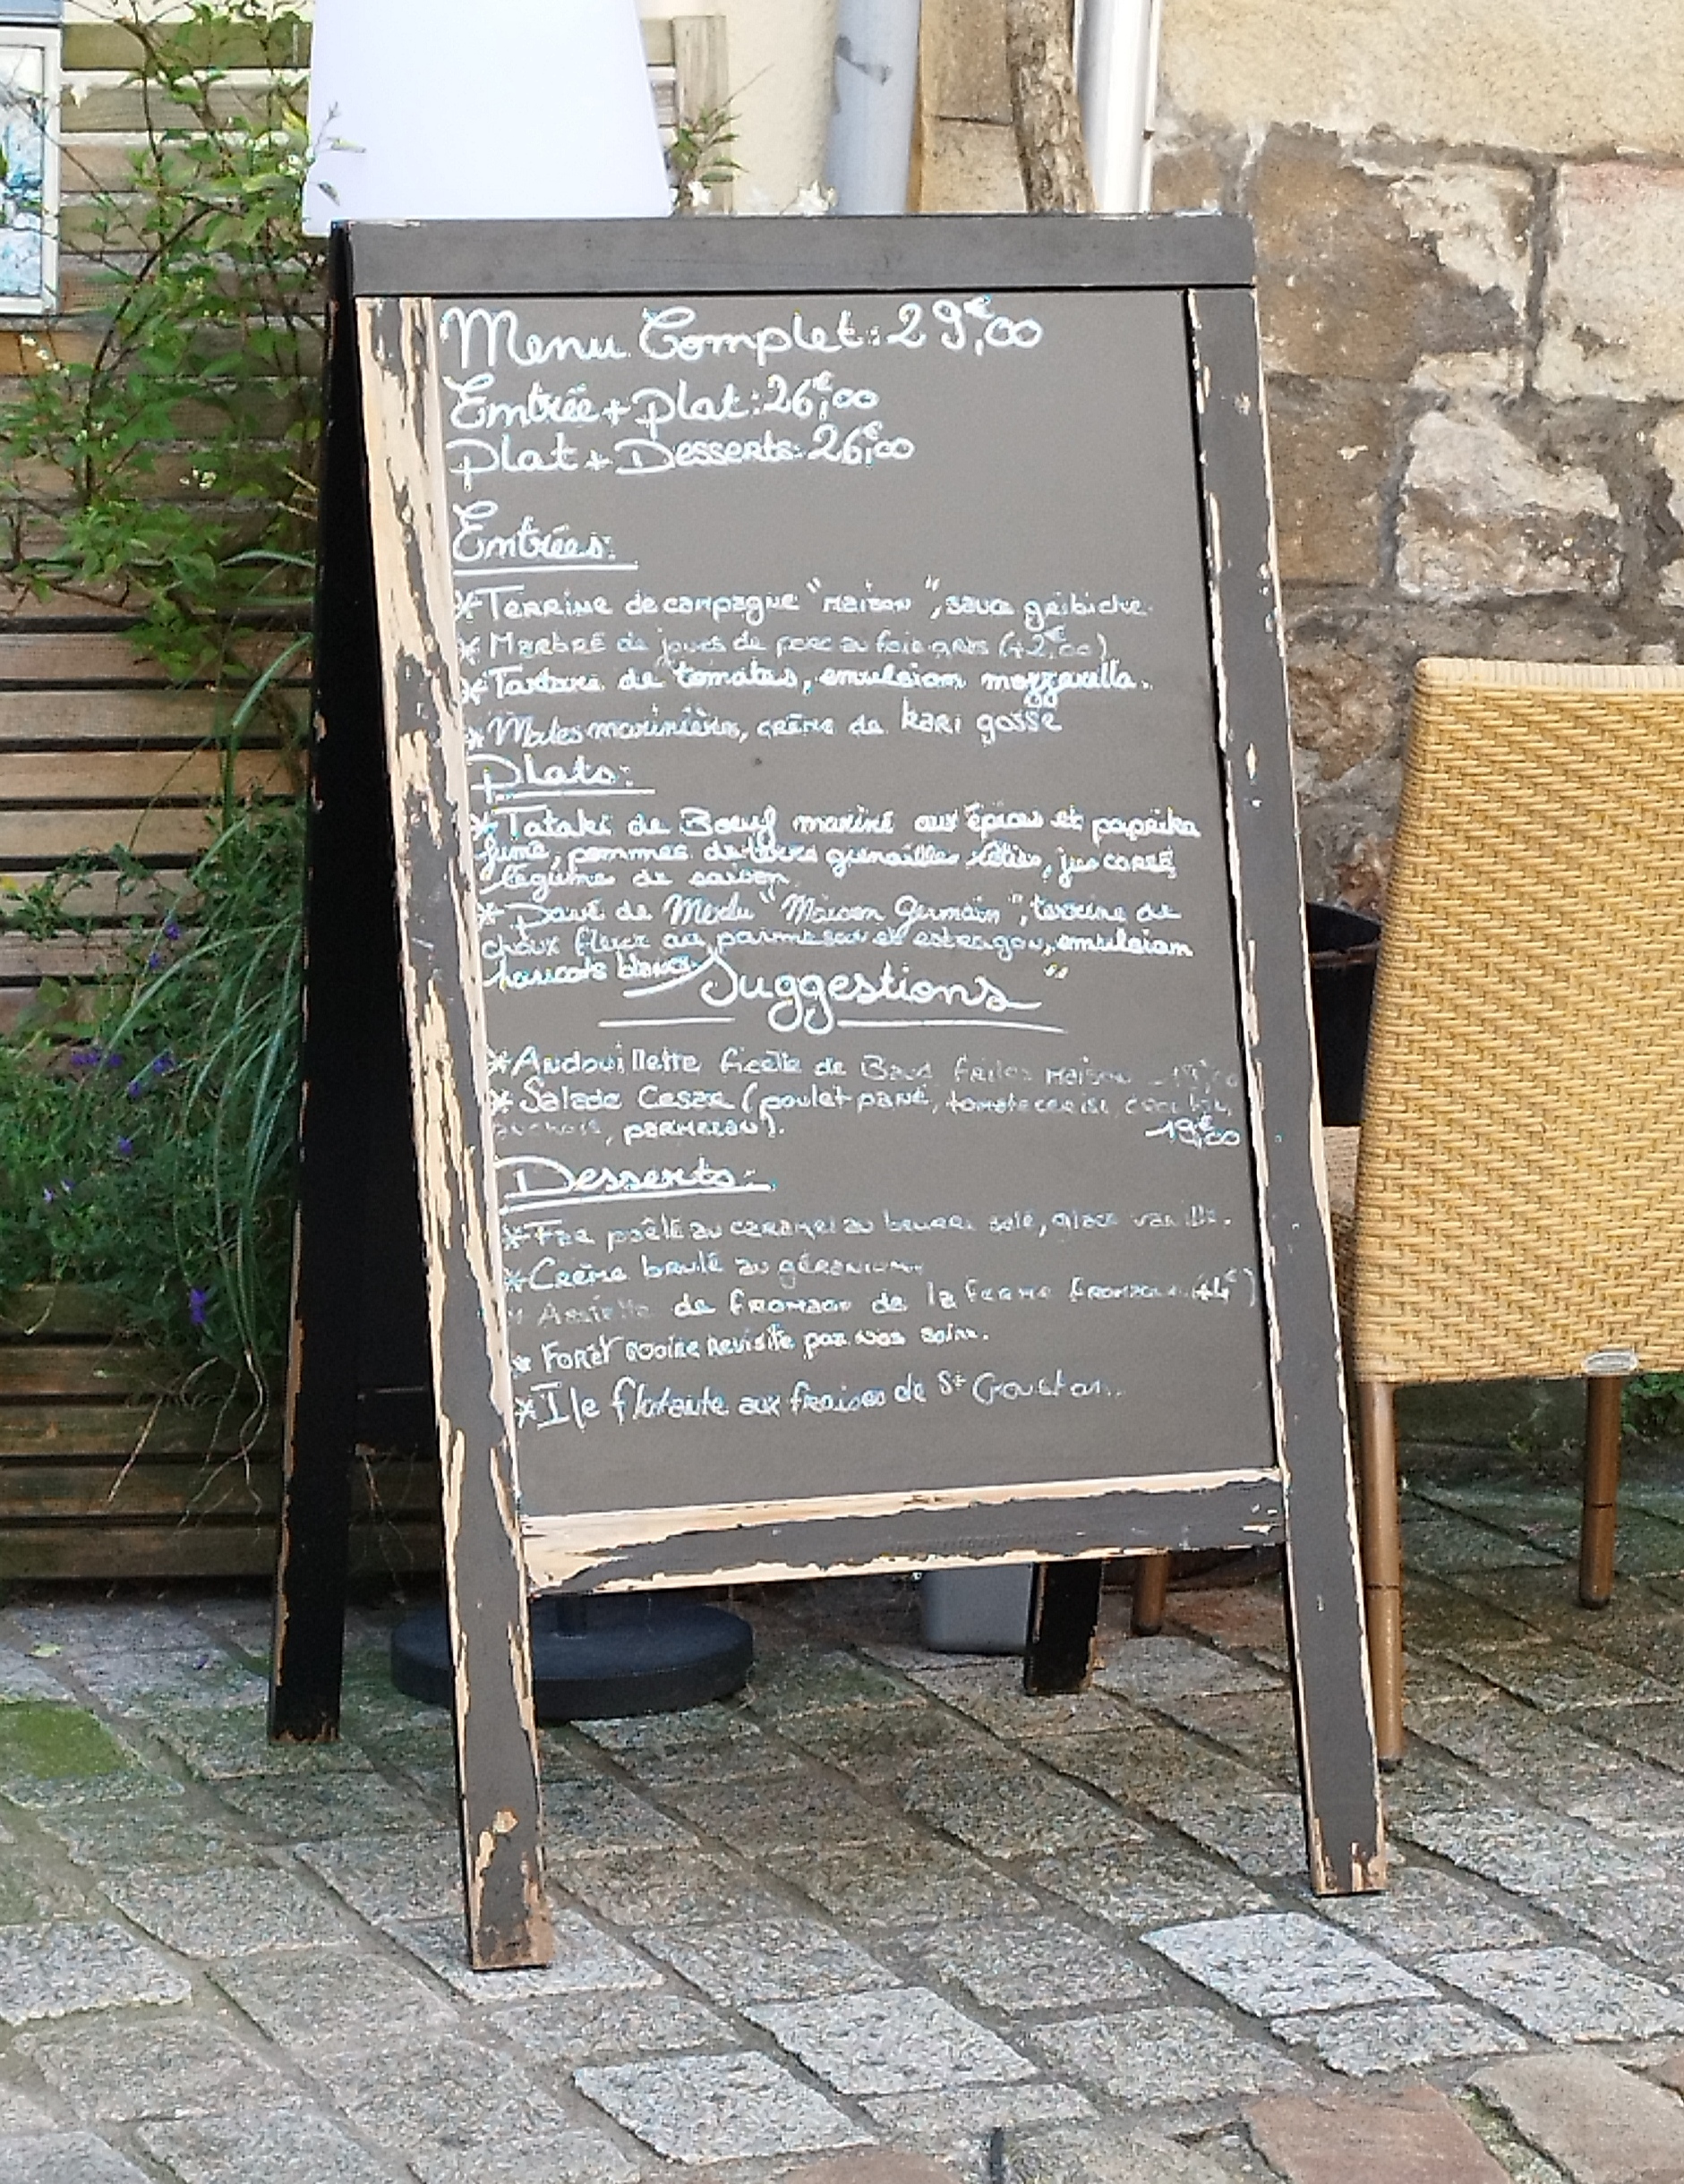 Menu Complet: 29€,00
Entrée + plat: 26€,00
plat + Desserts: 26€,00
Entrées:
* Terrine de campagne "maison", sauce gribiche.
* Marbré de joues de porc au foie gras (+2€,00)
* Tartare de tomates, emulsion mozzarella.
* Moules marinières, crème de kari gosse
Plats:
* Tataki de Bœuf mariné aux épices et paprika
fumé, pommes de terre grenailles rôties, jus corsé
légume de saison.
* Pavé de Merlu "Maison Germain", terrine de
choux fleur au parmesan et estragon, emulsion
haricots blancs
Suggestions
* Andouillette ficelle de Baud frites maison
* Salade Cesar (poulet pané, tomate cerise,
anchois, parmesan). 19€,00
Desserts:
* Far poêlé au caramel au beurre salé, glace vanille.
* Crème brulé au géranium.
* Assiette de fromage de la ferme fromagère (+4€)
* Forêt Noire revisite par nos soins.
* Ile flotante aux fraises de St Goustan..